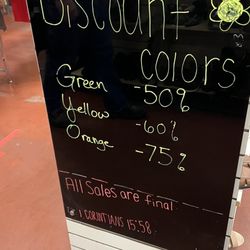 Discount
colors
Green -50%
Yellow -60%
Orange -75%
All Sales are final
1 CORINTHIANS 15:58